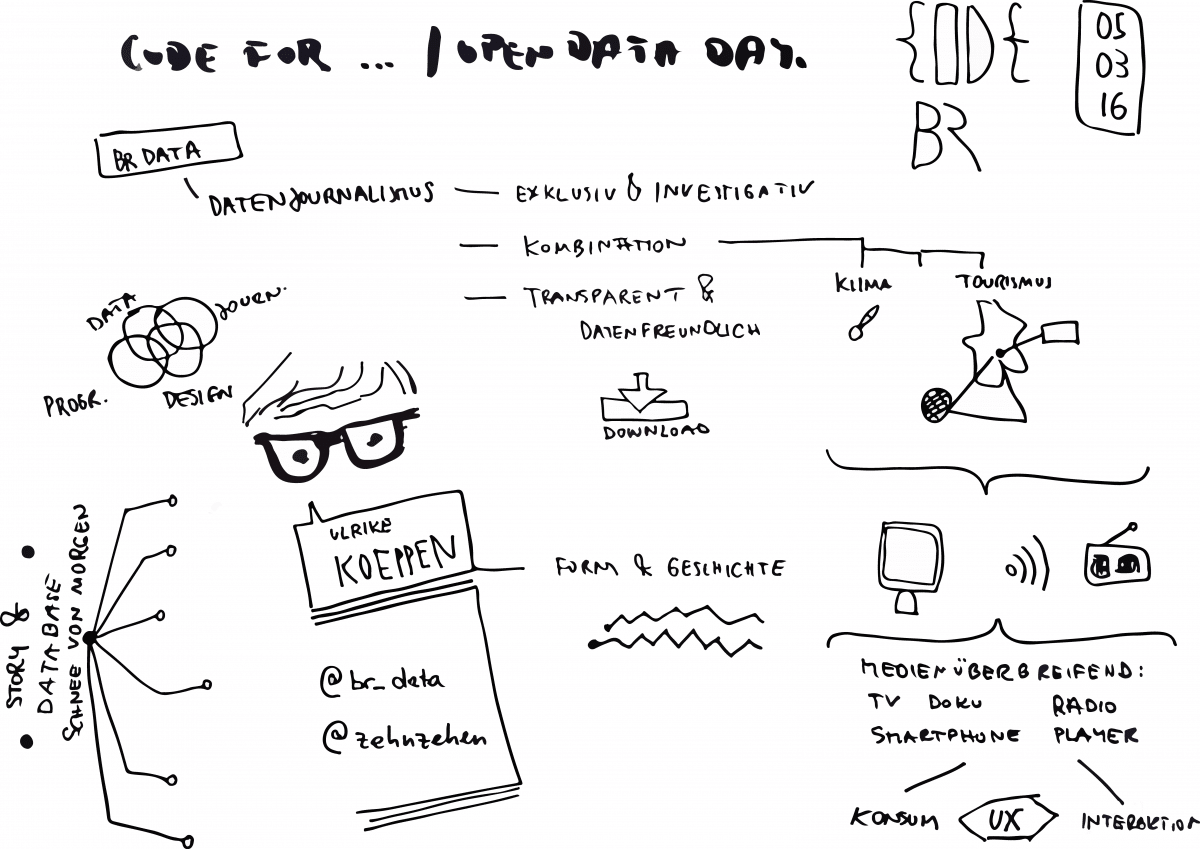 CODE FOR ... / OPEN DATA DAY.
{ODE
BR
05
03
16
BR DATA
DATENJOURNALISMUS
EXKLUSIV & INVESTIGATIV
KOMBINATION
TRANSPARENT &
DATENFREUNDLICH
KLIMA
TOURISMUS
DATA
JOURN.
PROGR.
DESIGN
DOWNLOAD
ULRIKE
KOEPPEN
FORM & GESCHICHTE
@br_data
@zehnzehen
STORY &
DATABASE
SCHNEE VON MORGEN
MEDIENÜBERGREIFEND:
TV DOKU RADIO
SMARTPHONE PLAYER
KONSUM UX INTERAKTION